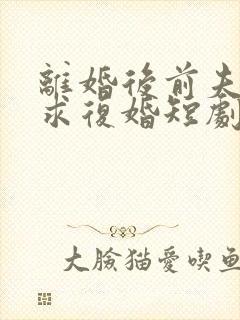 離婚後前夫
求復婚短劇
大臉貓愛喫魚